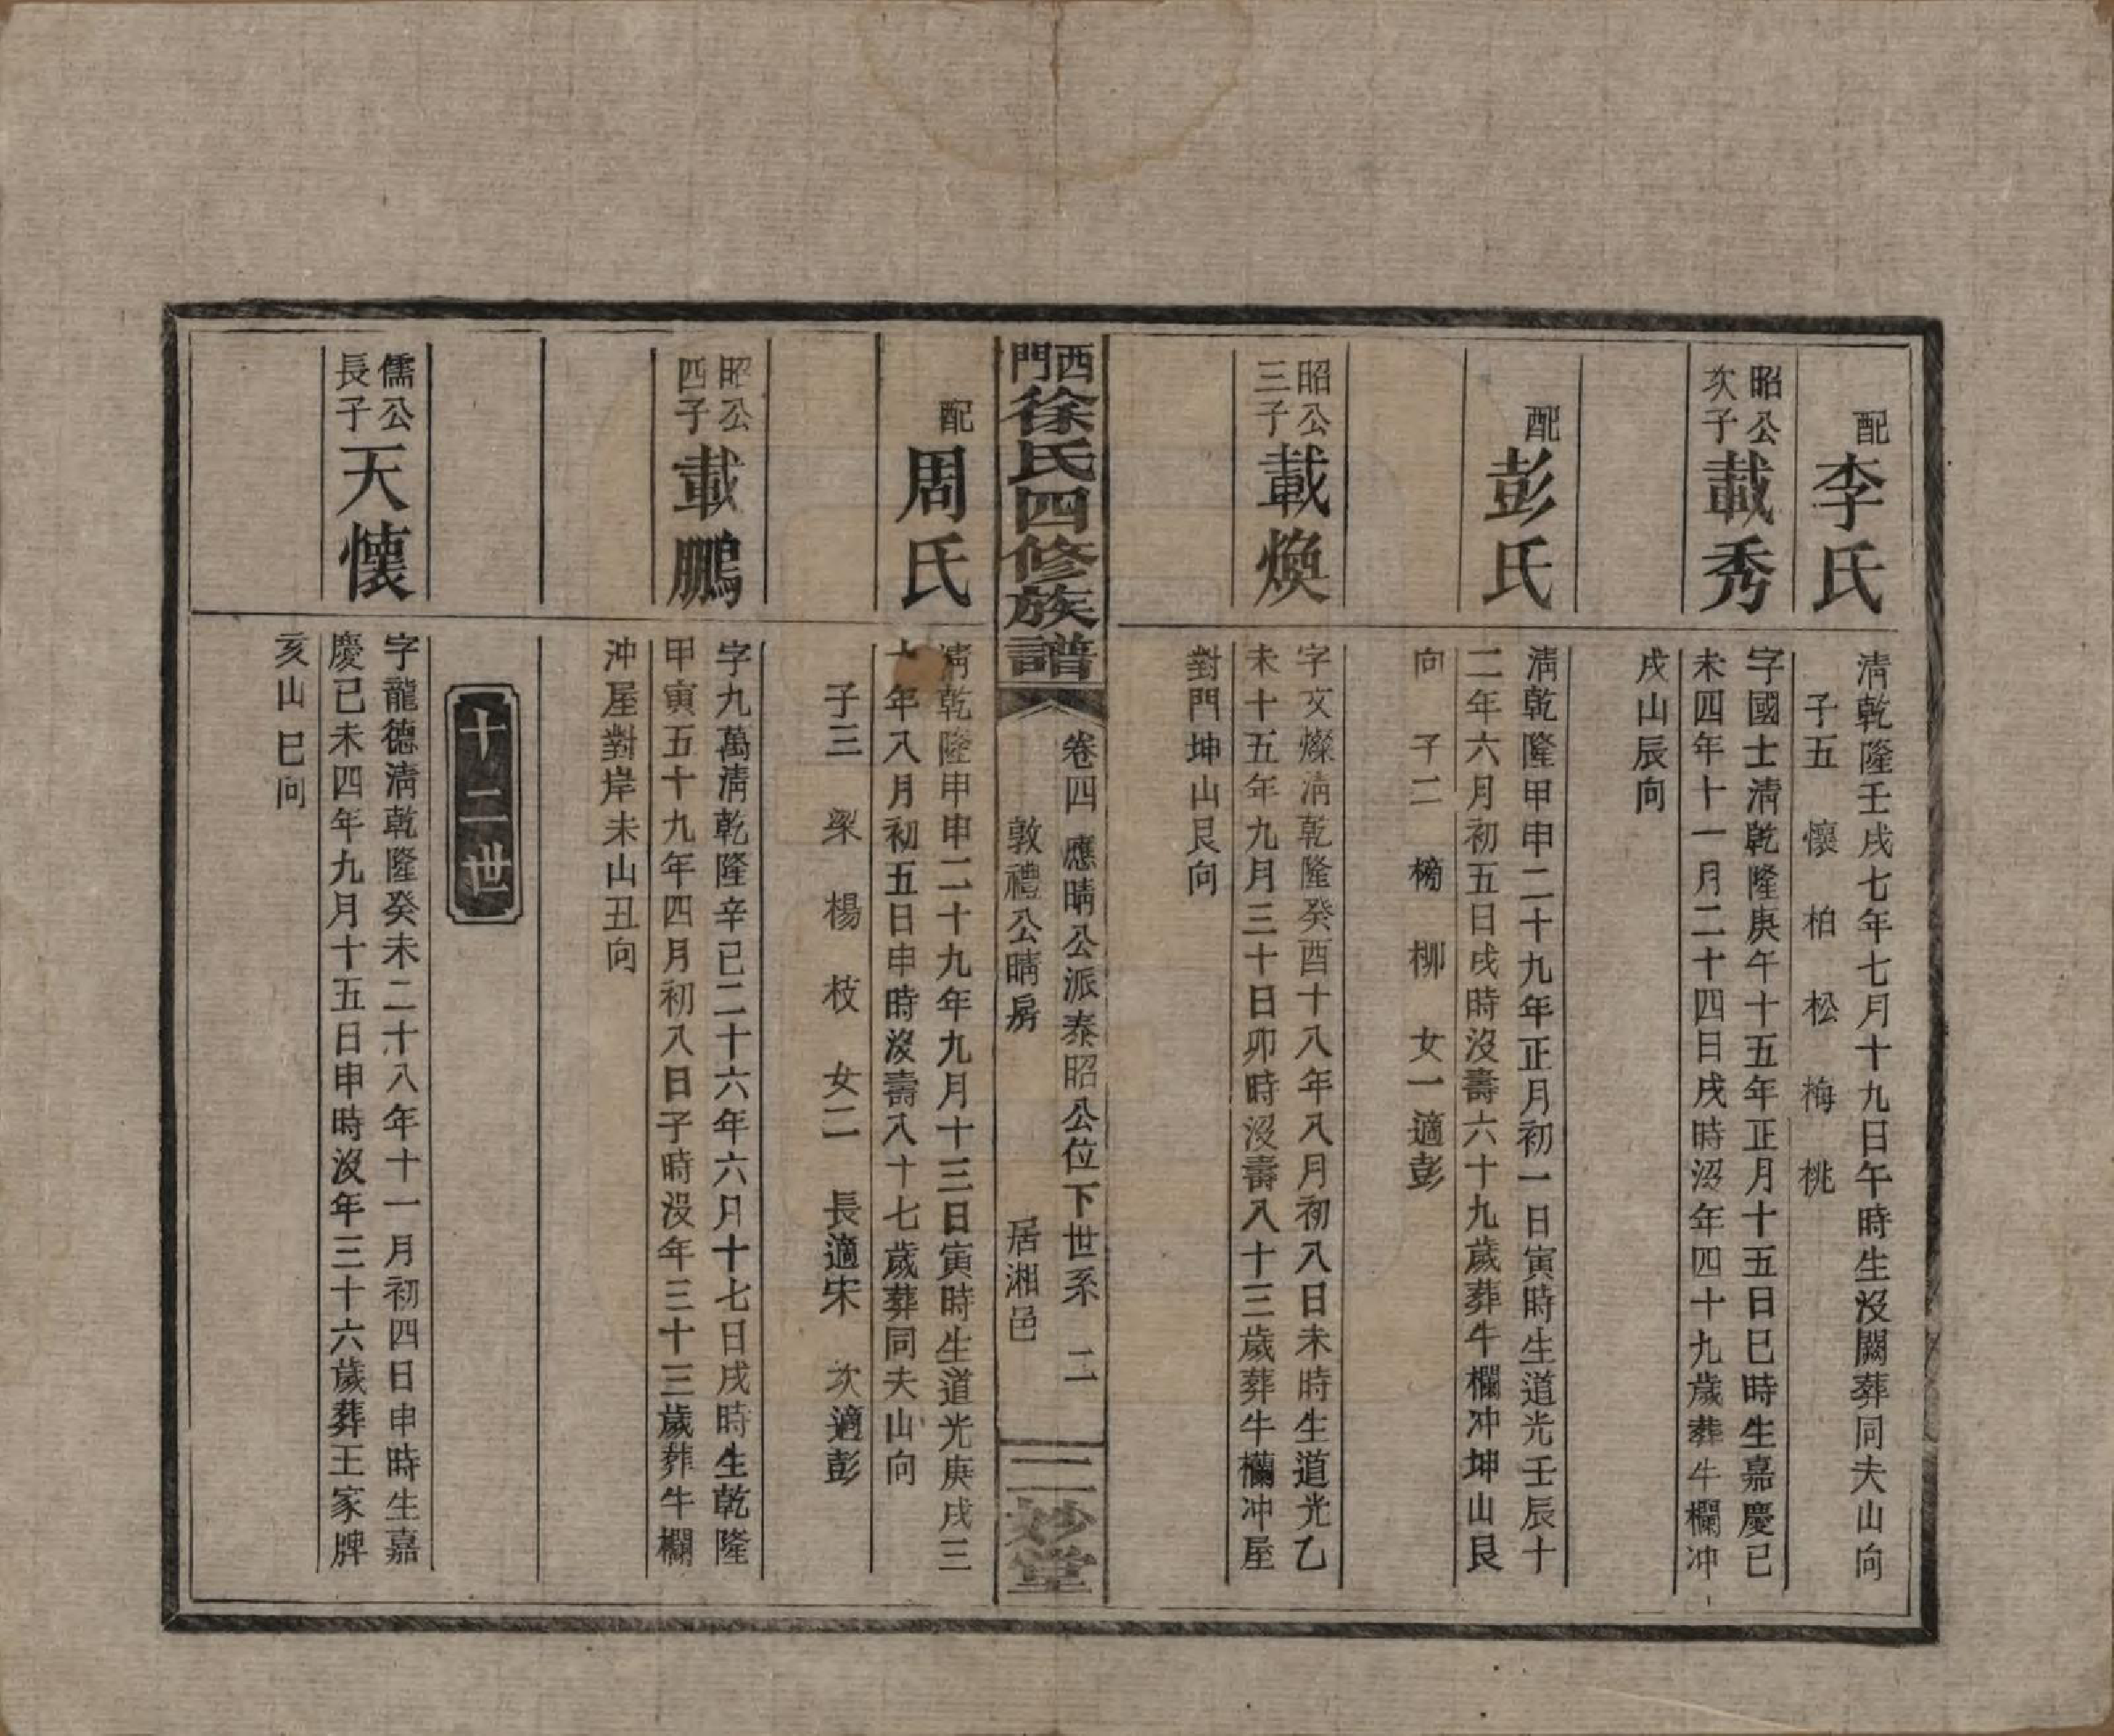 配
李氏
清乾隆壬戌七年七月十九日午時生沒闕葬同夫山向
子五 懷 柏 松 梅 桃
昭公
次子
載秀
字國士清乾隆庚午十五年正月十五日巳時生嘉慶已
未四年十一月二十四日戌時沒年四十九歲葬牛欄冲
戌山辰向
配
彭氏
清乾隆甲申二十九年正月初一日寅時生道光壬辰十
二年六月初五日戌時沒壽六十九歲葬牛欄冲坤山艮
向 子二 榜 柳 女一適彭
昭公
三子
載煥
字文燦清乾隆癸酉十八年八月初八日未時生道光乙
未十五年九月三十日卯時沒壽八十三歲葬牛欄冲屋
對門坤山艮向
西門徐氏四修族譜
卷四 應晴公派泰昭公位下世系 二
敦禮公晴房 居湘邑
二妙堂
配
周氏
清乾隆申申二十九年九月十三日寅時生道光庚戌三
十年八月初五日申時沒壽八十七歲葬同夫山向
子三 梁 楊 枝 女二 長適宋 次適彭
昭公
四子
載鵬
字九萬清乾隆辛已二十六年六月十七日戌時生乾隆
甲寅五十九年四月初八日子時沒年三十三歲葬牛欄
沖屋對岸未山丑向
十二世
儒公
長子
天懷
字龍德清乾隆癸未二十八年十一月初四日申時生嘉
慶已未四年九月十五日申時沒年三十六歲葬王家牌
亥山巳向